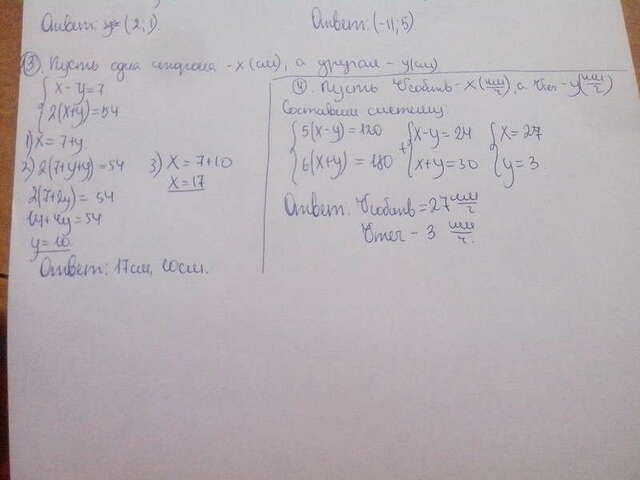 Ответ: (2; 1).
Ответ: (-11; 5)
③. Пусть одна сторона - x (см), а другая - y (см)
{ x - y = 7
2(x+y) = 54
1) x = 7+y
2) 2(7+y+y) = 54
2(7+2y) = 54
14+4y = 54
y = 10
3) x = 7+10
x = 17
Ответ: 17 см, 10 см.
④. Пусть Vсобств - x (км/ч), а Vтеч - y (км/ч)
Составим систему:
{ 5(x-y) = 120 { x-y = 24 { x = 27
6(x+y) = 180 + x+y = 30 y = 3
Ответ. Vсобств = 27 км/ч
Vтеч - 3 км/ч.